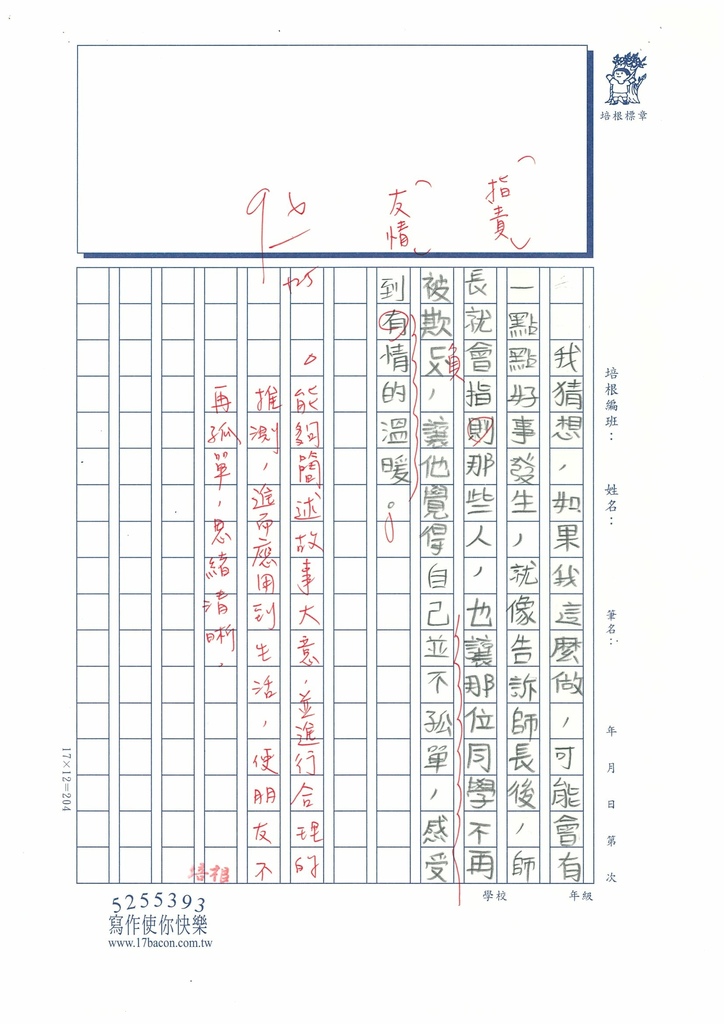 培根標章
培根編班：
姓名：
筆名：
年 月 日 第 次
學校
年級
指責
友情
95
我猜想，如果我這麼做，可能會有
一點點好事發生，就像告訴師長後，師
長就會指則那些人，也讓那位同學不再
被欺負，讓他覺得自己並不孤單，感受
到有情的溫暖。
能夠簡述故事大意，並進行合理的
推測，進而應用到生活，使朋友不
再孤單，思緒清晰。
培根
17×12=204
5255393
寫作使你快樂
www.17bacon.com.tw